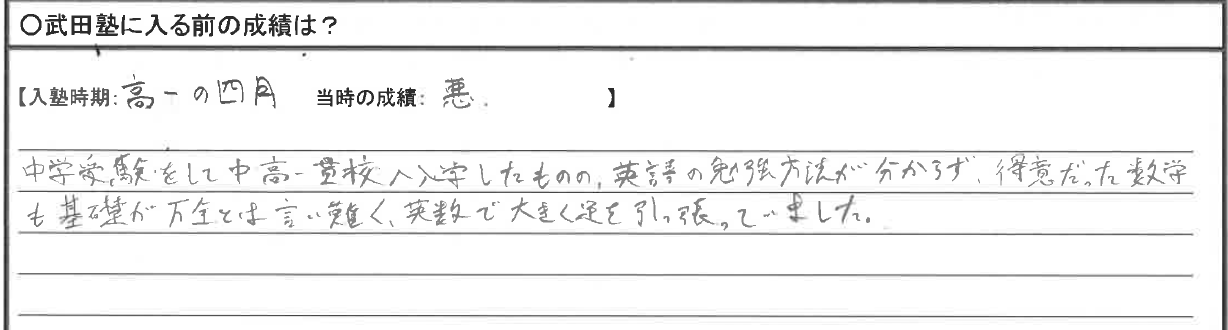 〇武田塾に入る前の成績は？
【入塾時期:高一の四月 当時の成績: 悪. 】
中学受験をして中高一貫校へ入学したものの、英語の勉強方法が分からず、得意だった数学
も基礎が万全とは言い難く、英数で大きく足を引っ張っていました。